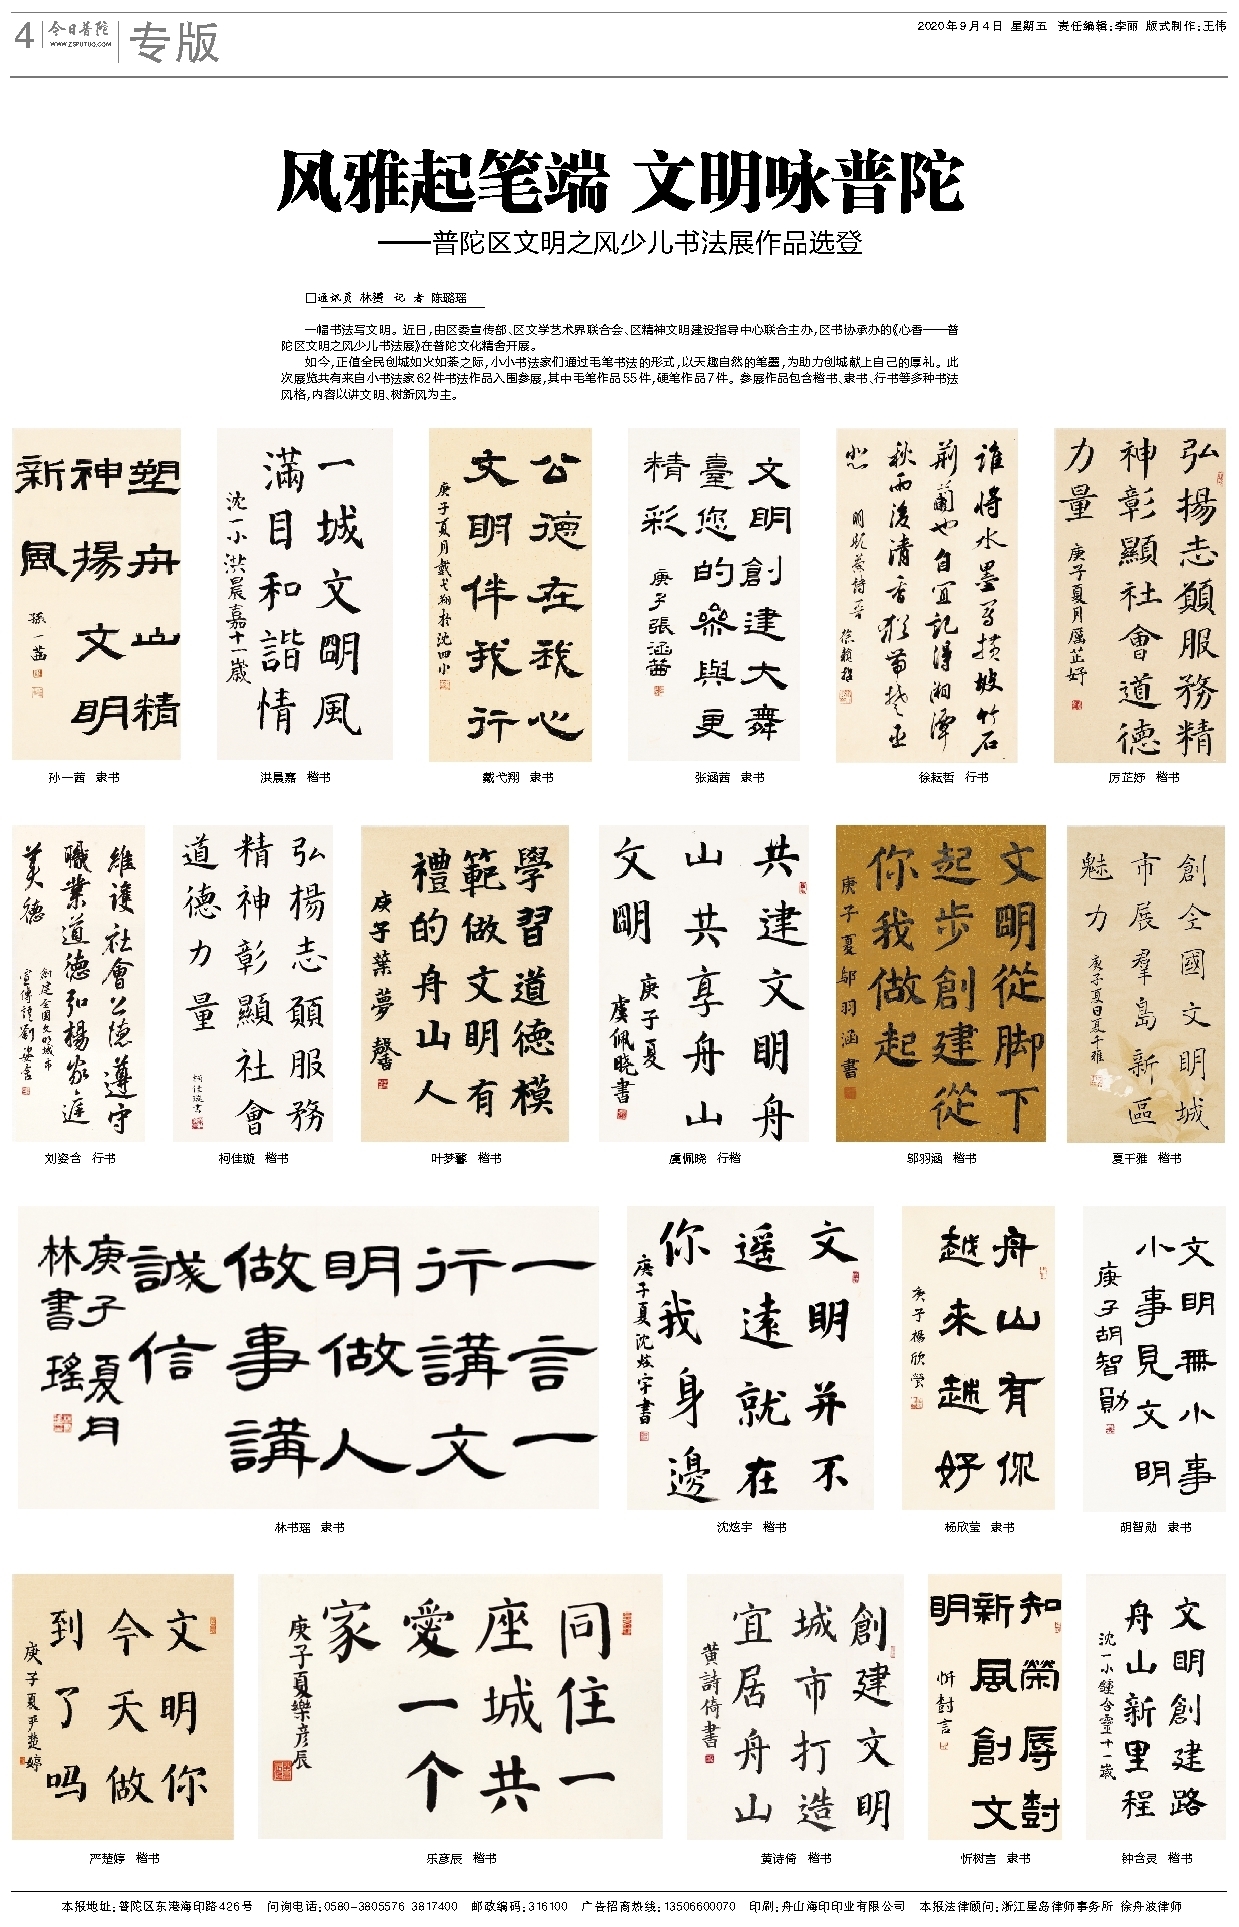 4
今日普陀
WWW.ZSPUTUO.COM
专版
2020年9月4日 星期五 责任编辑:李丽 版式制作:王伟
风雅起笔端 文明咏普陀
——普陀区文明之风少儿书法展作品选登
□通讯员 林赟 记 者 陈璐瑶
一幅书法写文明。近日,由区委宣传部、区文学艺术界联合会、区精神文明建设指导中心联合主办,区书协承办的《心香——普
陀区文明之风少儿书法展》在普陀文化精舍开展。
如今,正值全民创城如火如荼之际,小小书法家们通过毛笔书法的形式,以天趣自然的笔墨,为助力创城献上自己的厚礼。此
次展览共有来自小书法家62件书法作品入围参展,其中毛笔作品55件,硬笔作品7件。参展作品包含楷书、隶书、行书等多种书法
风格,内容以讲文明、树新风为主。
塑舟山精
神揚文明
新風
孫一茜
孙一茜 隶书
一城文明風
滿目和諧情
沈一小洪晨嘉十一歲
洪晨嘉 楷书
公德在我心
文明伴我行
庚子夏月戴弋翔於沈四小
戴弋翔 隶书
文明創建大舞
臺您的參與更
精彩
庚子張涵茜
张涵茜 隶书
誰將水墨寫橫坡竹石
荊蘭也自宜記得湘潭
秋雨後清香猶帶楚臣
悲
徐耘哲 行书
弘揚志願服務精
神彰顯社會道德
力量
庚子夏月厲芷妤
厉芷妤 楷书
維護社會公德遵守
職業道德弘揚家庭
美德
創建全國文明城市
宣傳語劉姿含
刘姿含 行书
弘楊志願服務
精神彰顯社會
道德力量
柯佳璇書
柯佳璇 楷书
學習道德模
範做文明有
禮的舟山人
庚子葉夢馨
叶梦馨 楷书
共建文明舟
山共享舟山
文明
庚子夏
虞佩曉書
虞佩晓 行楷
文明從脚下
起步創建從
你我做起
庚子夏邬羽涵書
邬羽涵 楷书
創全國文明城
市展羣島新區
魅力
庚子夏日夏千雅
夏千雅 楷书
一言一
行講文
明做人
做事講
誠信
庚子夏月
林書瑤
林书瑶 隶书
文明并不
遥遠就在
你我身邊
庚子夏沈炫宇書
沈炫宇 楷书
舟山有你
越来越好
庚子楊欣瑩
杨欣莹 隶书
文明無小事
小事見文明
庚子胡智勛
胡智勋 隶书
文明你
今天做
到了吗
庚子夏严楚婷
严楚婷 楷书
同住一
座城共
愛一个
家
庚子夏樂彦辰
乐彦辰 楷书
創建文明
城市打造
宜居舟山
黄詩倚書
黄诗倚 楷书
知榮辱封
新風創文
明
忻封言
忻树言 隶书
文明創建路
舟山新里程
沈一小鍾含靈十一歲
钟含灵 楷书
本报地址:普陀区东港海印路426号 问询电话:0580-3805576 3817400 邮政编码:316100 广告招商热线:13506600070 印刷:舟山海印印业有限公司 本报法律顾问:浙江星岛律师事务所 徐舟波律师